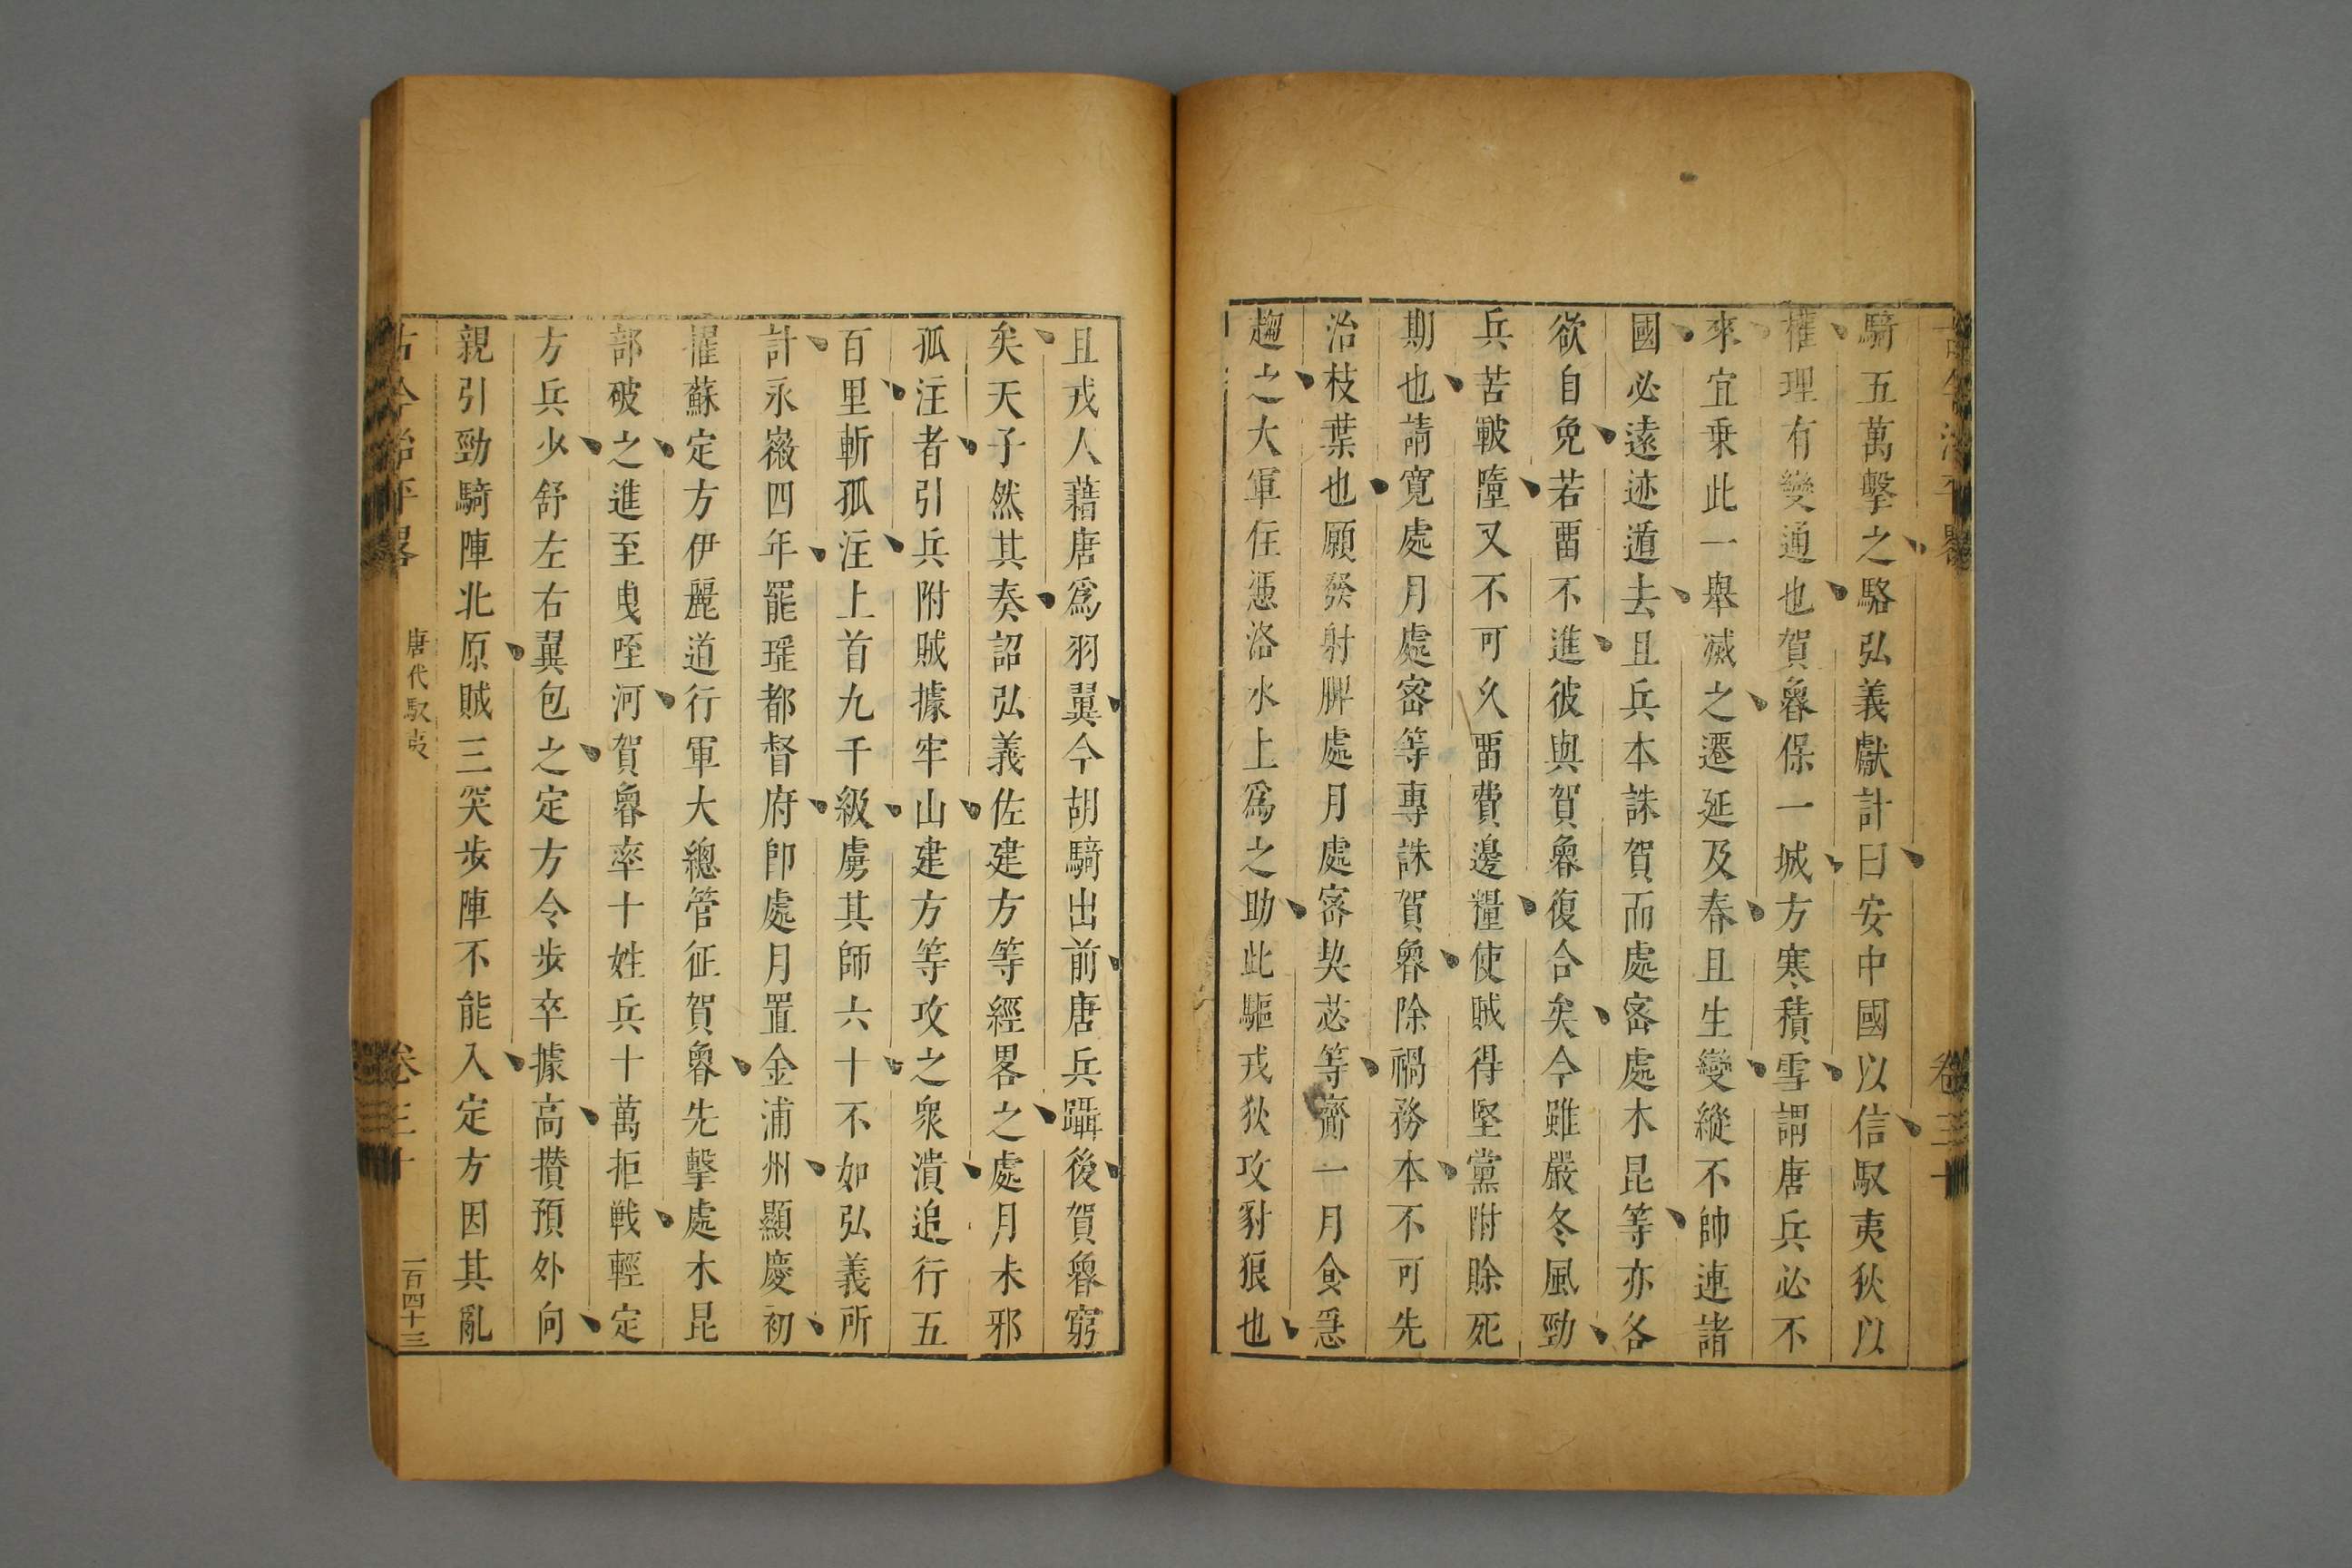 騎五萬擊之駱弘義獻計曰安中國以信馭夷狄以
權理有變通也賀魯保一城方寒積雪謂唐兵必不
來宜乗此一舉滅之遷延及春且生變縱不帥連諸
國必遠迹遁去且兵本誅賀而處密處木昆等亦各
欲自免若畱不進彼與賀魯復合矣今雖嚴冬風勁
兵苦皸墮又不可久畱費邊糧使賊得堅黨附賒死
期也請寬處月處密等專誅賀魯除禍務本不可先
治枝葉也願發射脾處月處密契苾等齎一月食急
趨之大軍住憑洛水上爲之助此驅戎狄攻豺狼也
且戎人藉唐爲羽翼今胡騎出前唐兵躡後賀魯窮
矣天子然其奏詔弘義佐建方等經畧之處月朱邪
孤注者引兵附賊據牢山建方等攻之衆潰追行五
百里斬孤注上首九千級虜其師六十不如弘義所
計永徽四年罷瑤都督府卽處月置金浦州顯慶初
擢蘇定方伊麗道行軍大總管征賀魯先擊處木昆
部破之進至曳咥河賀魯率十姓兵十萬拒戦輕定
方兵少舒左右翼包之定方令步卒據高攢預外向
親引勁騎陣北原賊三突步陣不能入定方因其亂
古今治平畧 唐代馭夷 卷三十 一百四十三